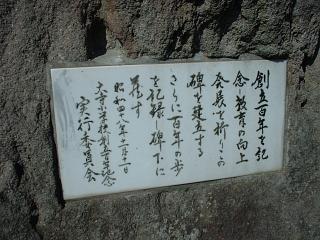 創立百年を記
念し教育の向上
発展を祈りこの
碑を建立する
さらに百年の歩
を記録し碑下に
蔵す
昭和四十八年十一月十一日
大寺小学校創立百年記念
実行委員会